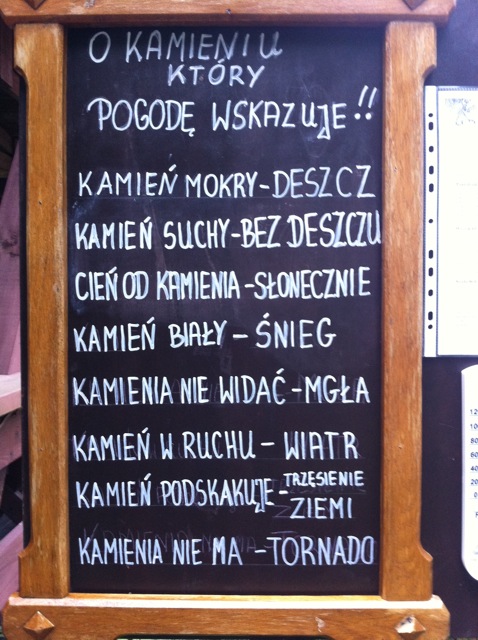 O KAMIENIU
KTÓRY
POGODĘ WSKAZUJE!!
KAMIEŃ MOKRY-DESZCZ
KAMIEŃ SUCHY-BEZ DESZCZU
CIEŃ OD KAMIENIA-SŁONECZNIE
KAMIEŃ BIAŁY-ŚNIEG
KAMIENIA NIE WIDAĆ-MGŁA
KAMIEŃ W RUCHU-WIATR
KAMIEŃ PODSKAKUJE-TRZĘSIENIE
ZIEMI
KAMIENIA NIE MA-TORNADO